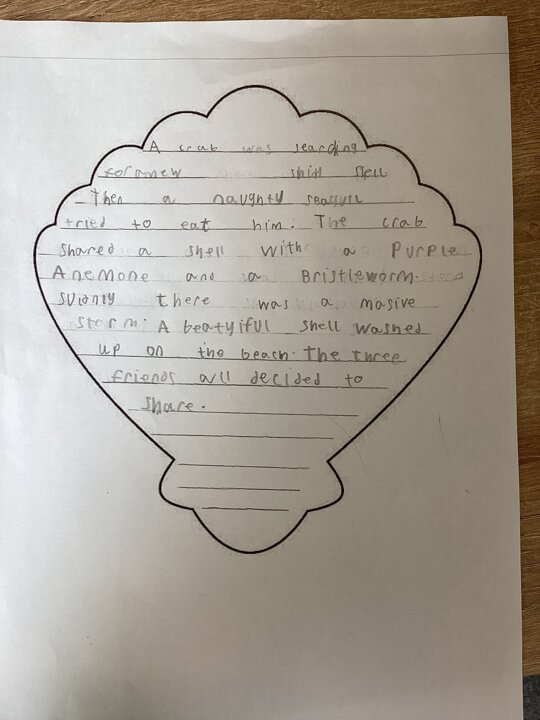 A crab was searching
for a new shell
Then a naughty seagull
tried to eat him. The crab
shared a shell with a Purple
Anemone and a Bristleworm.
suddenly there was a masive
storm. A beatyiful shell washed
up on the beach. The three
friends all decided to
share.